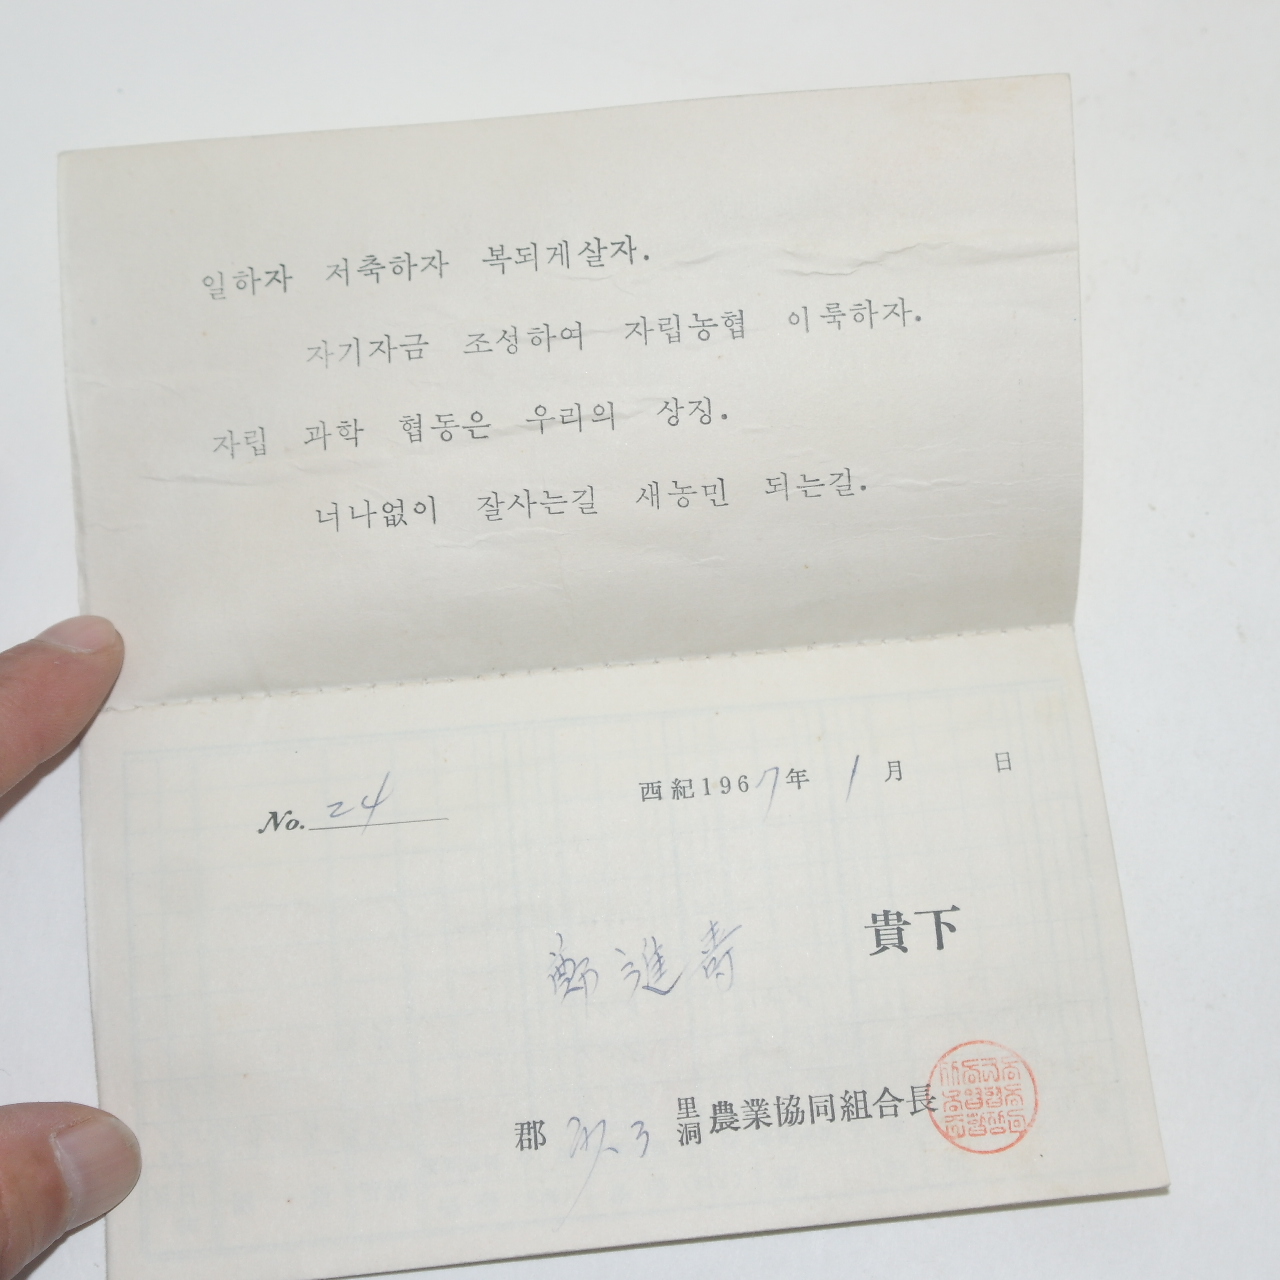 일하자 저축하자 복되게살자.
자기자금 조성하여 자립농협 이룩하자.
자립 과학 협동은 우리의 상징.
너나없이 잘사는길 새농민 되는길.
西紀1967年 1月 日
No. 24
貴下
鄭進壽
郡 里洞 農業協同組合長